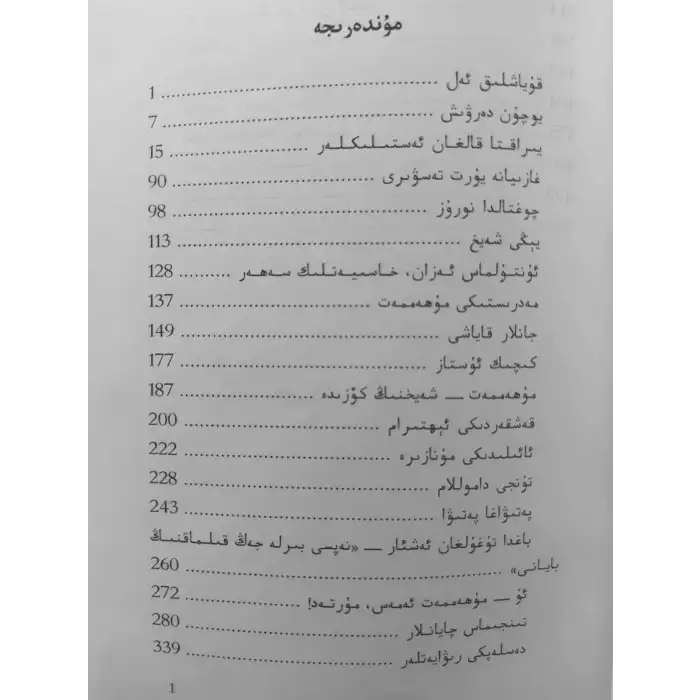 مۇندەرىجە
قۇياشلىق ئەل ........ 1
يوچۇن دەرۋىش ........ 7
يىراقتا قالغان ئەستىلىكلەر ........ 15
غازىيانە يۇرت تەسۋىرى ........ 90
چوغتالدا نورۇز ........ 98
يېڭى شەيخ ........ 113
ئۇنتۇلماس ئەزان، خاسىيەتلىك سەھەر ........ 128
مەدرىستىكى مۇھەممەت ........ 137
جانلار قاياشى ........ 149
كىچىك ئۇستاز ........ 177
مۇھەممەت — شەيخنىڭ كۆزىدە ........ 187
قەشقەردىكى ئېھتىرام ........ 200
ئائىلىدىكى مۇنازىرە ........ 222
تۇنجى داموللام ........ 228
پەتىۋاغا پەتىۋا ........ 243
باغدا تۇغۇلغان ئەشئار — «نەپسى بىرلە جەڭ قىلماقنىڭ
بايانى» ........ 260
ئۇ — مۇھەممەت ئەمەس، مۇرتەد! ........ 272
تىنجىماس چايانلار ........ 280
دەسلەپكى رىۋايەتلەر ........ 339
1